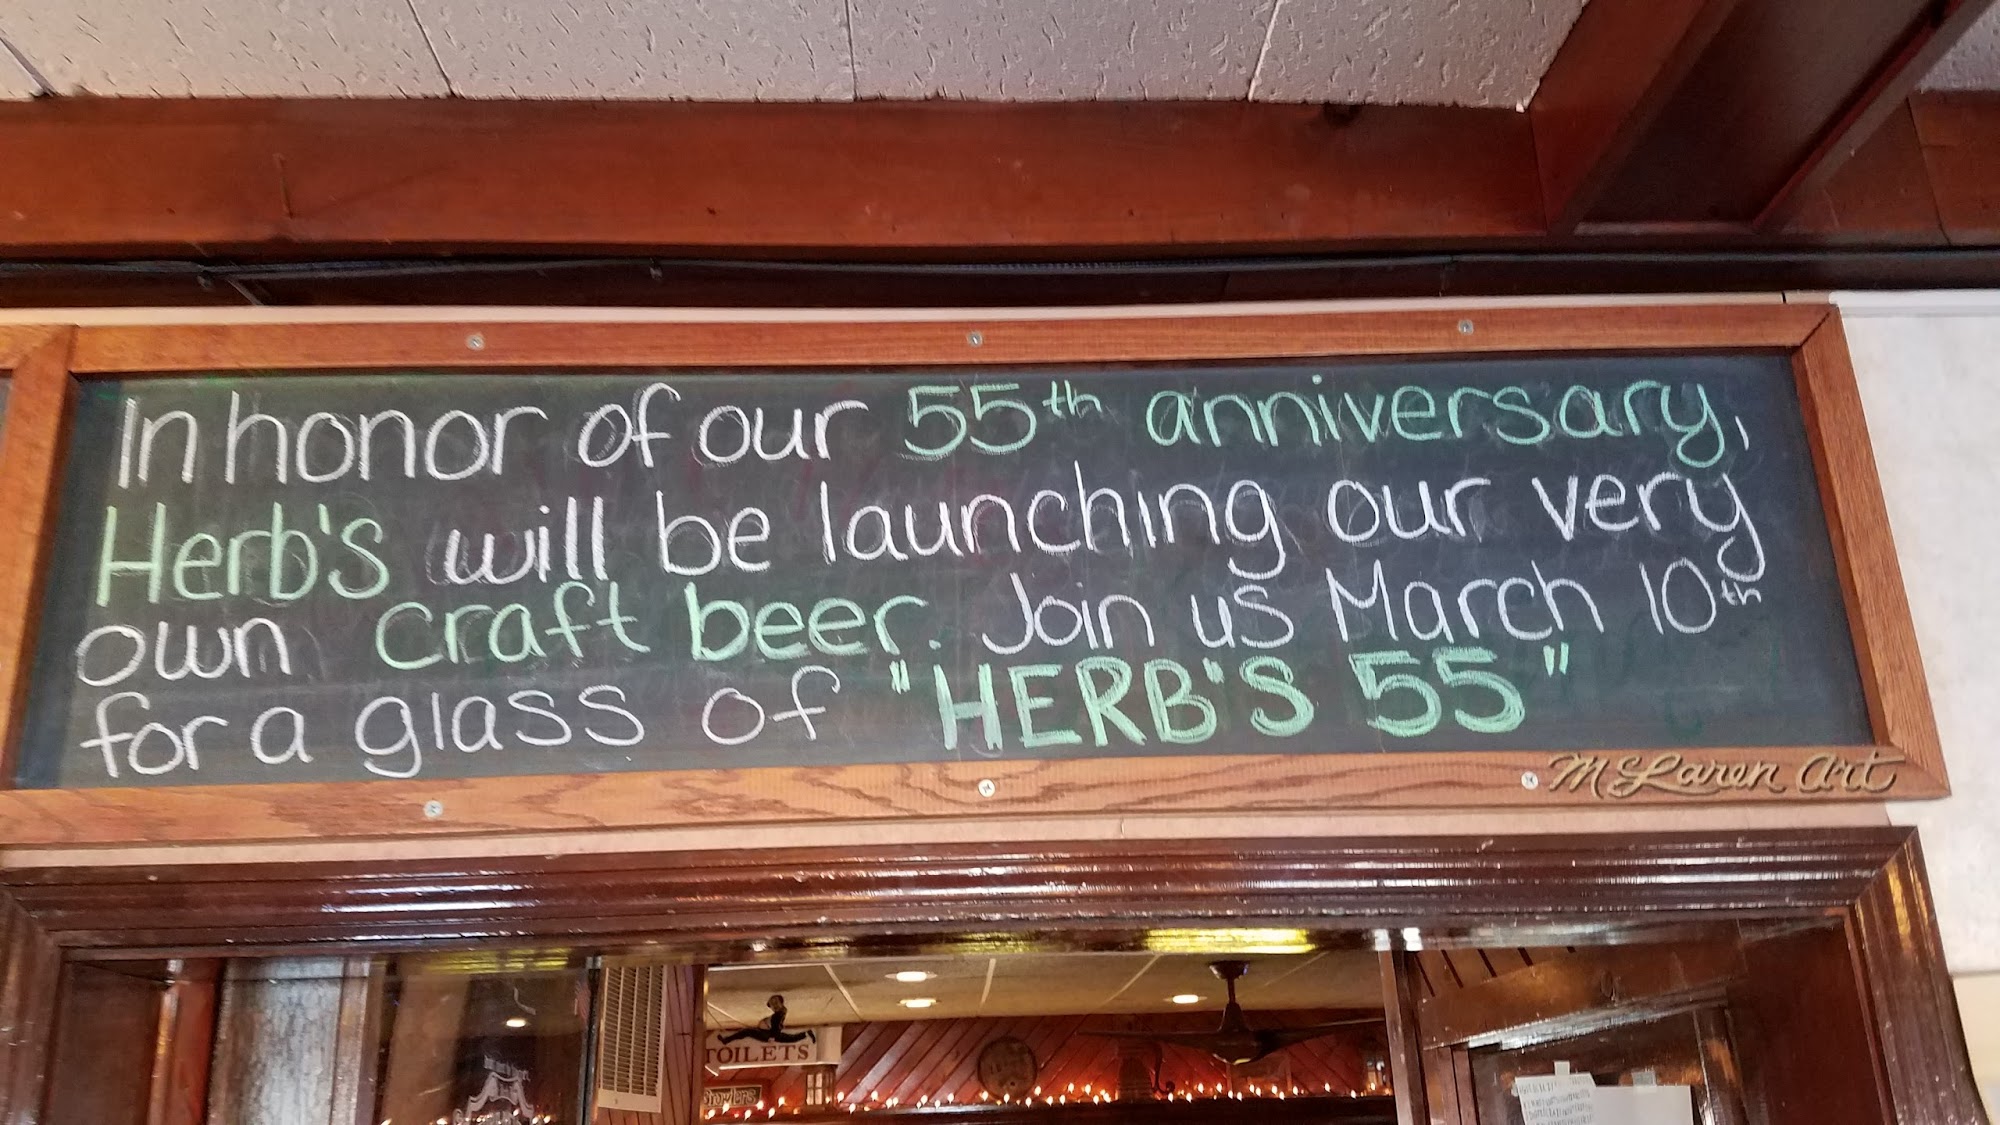 In honor of our 55th anniversary,
Herb's will be launching our very
own craft beer. Join us March 10th
for a glass of "HERB'S 55"
McLaren Art
TOILETS
Growlers